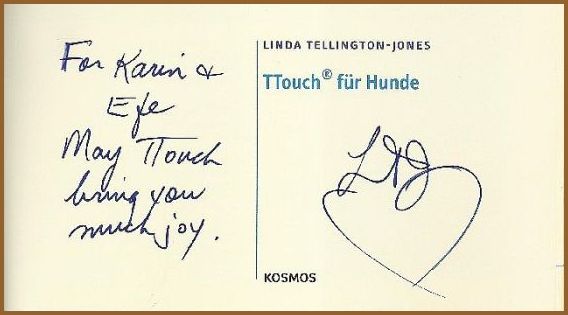 For Karin &
Efe
May TTouch
bring you
much joy.
LINDA TELLINGTON-JONES
TTouch® für Hunde
LTJ
KOSMOS